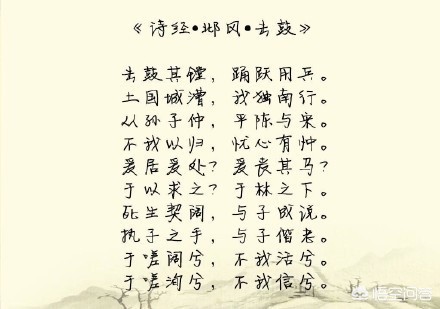 《诗经•邶风•击鼓》
击鼓其镗，踊跃用兵。
土国城漕，我独南行。
从孙子仲，平陈与宋。
不我以归，忧心有忡。
爰居爰处？爰丧其马？
于以求之？于林之下。
死生契阔，与子成说。
执子之手，与子偕老。
于嗟阔兮，不我活兮。
于嗟洵兮，不我信兮。
悟空问答